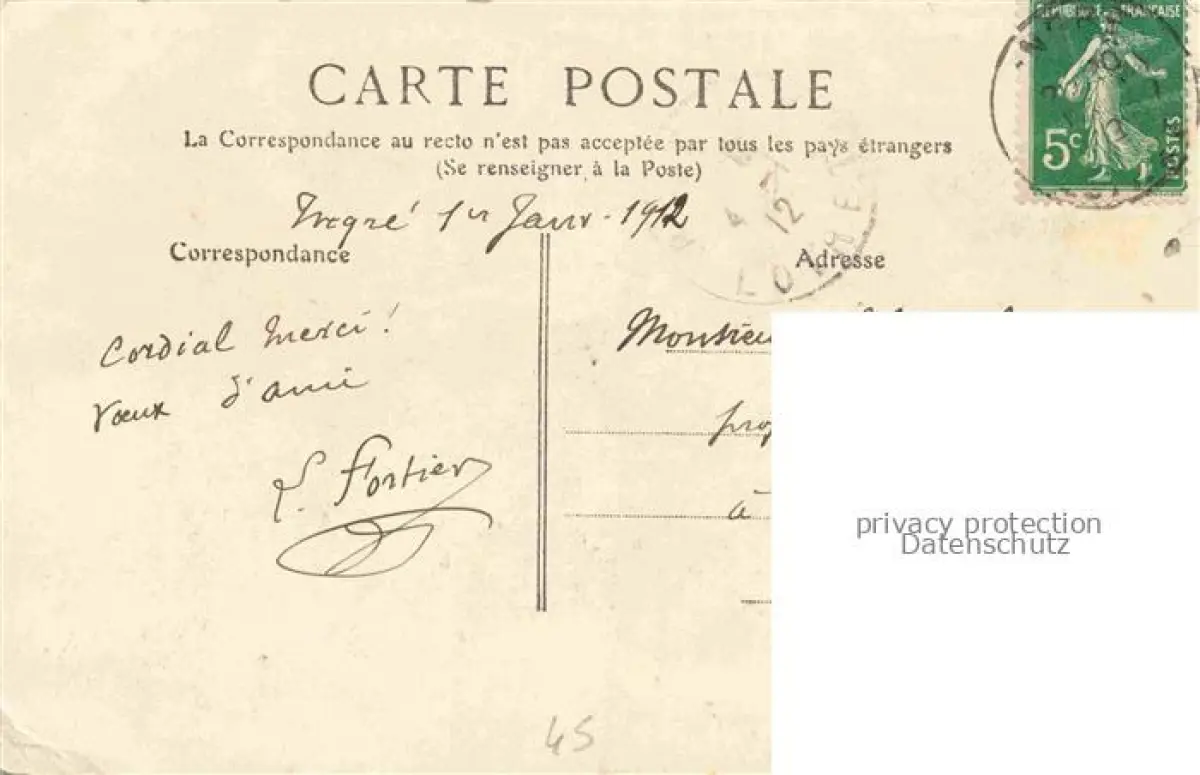 RÉPUBLIQUE FRANÇAISE
5c
POSTES
CARTE POSTALE
La Correspondance au recto n'est pas acceptée par tous les pays étrangers
(Se renseigner à la Poste)
1er Janv. 1912
Correspondance
Adresse
12
Cordial merci!
Vœux d'ami
Fortier
Monsieur
à
privacy protection
Datenschutz
45